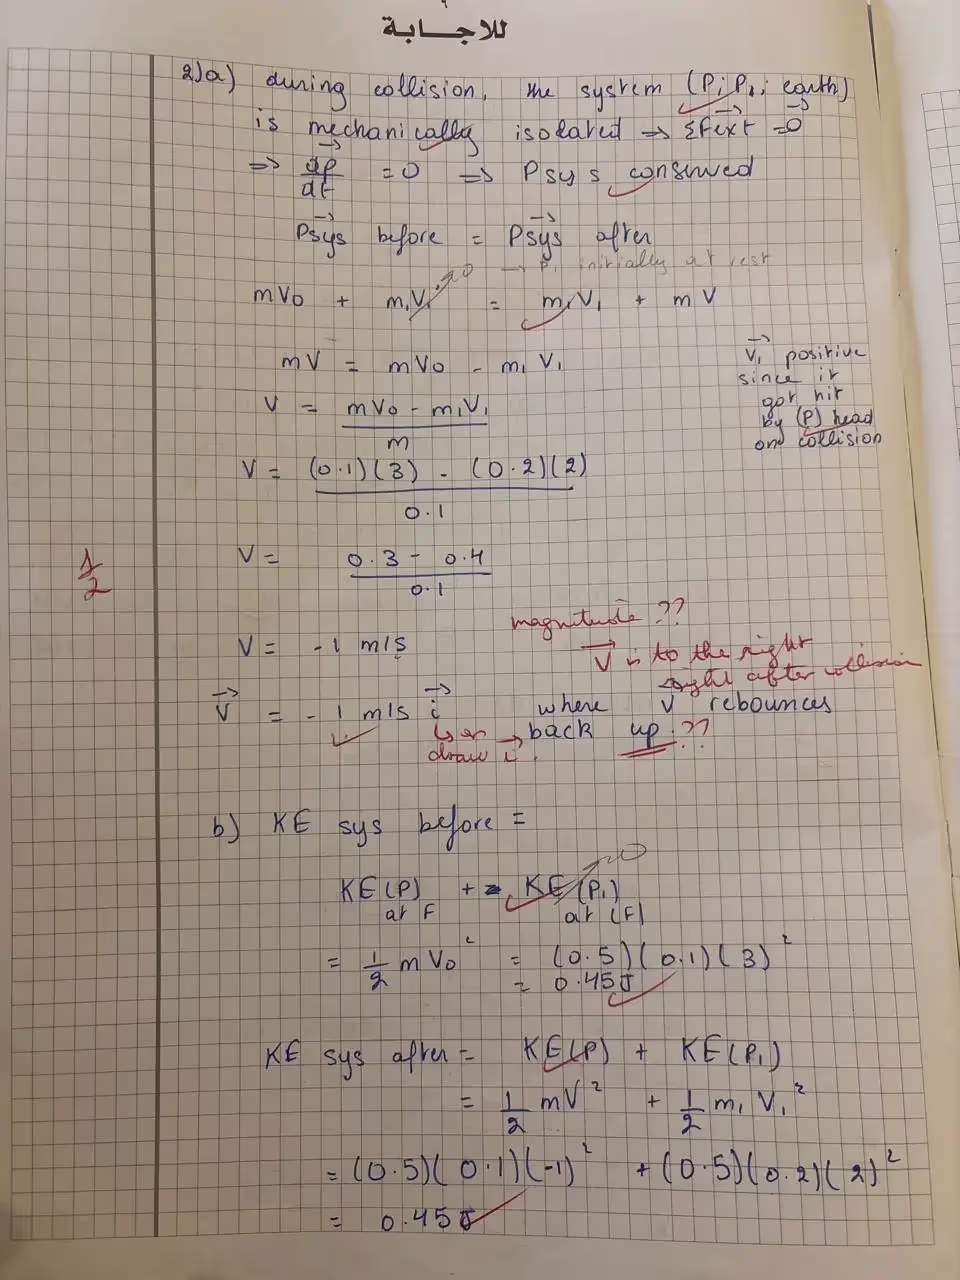 للاجـابة
2)a) during collision, the system (P; P1; earth)
is mechanically isolated ⇒ ΣFext = 0
⇒ dp/dt = 0 ⇒ Psys conserved
Psys before = Psys after
→ P1 initially at rest
mV0 + m1V1 → 0 = m1V1 + mV
mV = mV0 - m1V1
V = (mV0 - m1V1)/m
V1 positive
since it
got hit
by (P) head
on collision
V = ((0.1)(3) - (0.2)(2))/0.1
V = (0.3 - 0.4)/0.1
1/2
V = -1 m/s
magnitude ??
V is to the right
right after collision
V = -1 m/s i where V rebounces
back up ??
draw i
b) KE sys before =
KE(P) at F + KE(P1) at (F) → 0
= 1/2 mV0² = (0.5)(0.1)(3)²
= 0.45J
KE sys after = KE(P) + KE(P1)
= 1/2 mV² + 1/2 m1V1²
= (0.5)(0.1)(-1)² + (0.5)(0.2)(2)²
= 0.45J